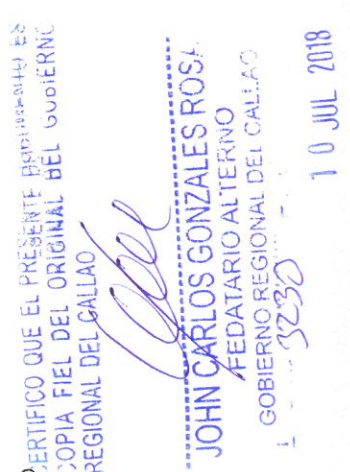 CERTIFICO QUE EL PRESENTE DOCUMENTO ES
COPIA FIEL DEL ORIGINAL DEL GOBIERNO
REGIONAL DEL CALLAO
JOHN CARLOS GONZALES ROSA
FEDATARIO ALTERNO
GOBIERNO REGIONAL DEL CALLAO
3230
10 JUL 2018